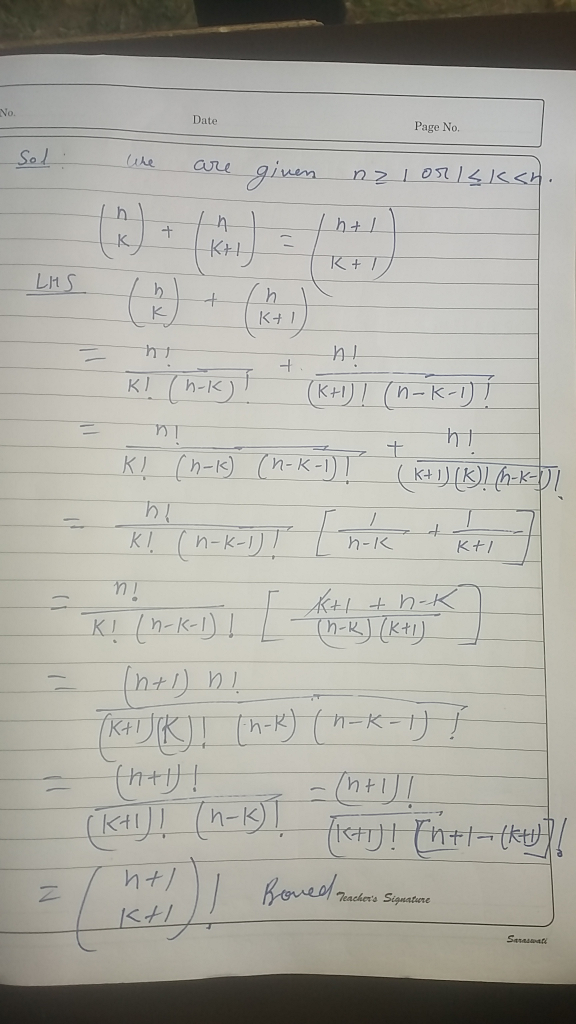 No. Date Page No.
Sol: We are given n ≥ 1 or 1 ≤ K < n.
(n K) + (n K+1) = (n+1 K+1)
LHS (n K) + (n K+1)
= n! / K! (n-K)! + n! / (K+1)! (n-K-1)!
= n! / K! (n-K) (n-K-1)! + n! / (K+1)(K)! (n-K-1)!
= n! / K! (n-K-1)! [ 1 / n-K + 1 / K+1 ]
= n! / K! (n-K-1)! [ K+1 + n-K / (n-K) (K+1) ]
= (n+1) n! / (K+1)(K)! (n-K) (n-K-1)!
= (n+1)! / (K+1)! (n-K)! = (n+1)! / (K+1)! [n+1-(K+1)]!
= (n+1 K+1)! Proved Teacher's Signature
Saraswati